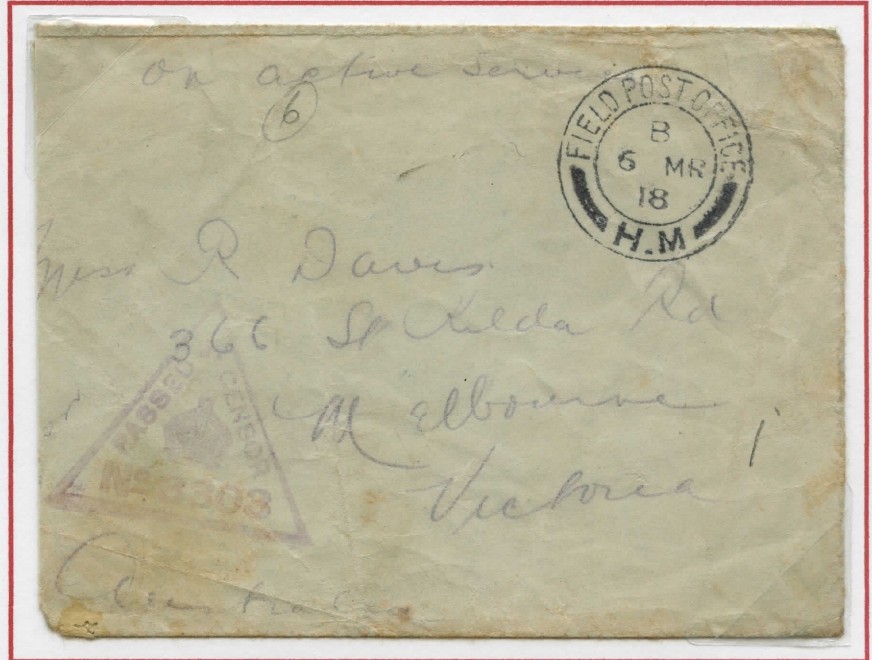 on active service
6
FIELD POST OFFICE
B
6 MR
18
H.M
Miss R Davis
366 St Kilda Rd
Melbourne
Victoria
Australia
PASSED CENSOR
No 3303